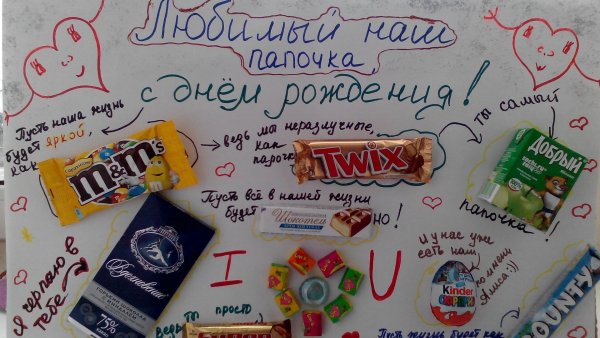 Любимый наш
папочка,
с днём рождения!
Пусть наша жизнь
будет яркой,
как
m&m's
ведь мы неразлучные,
как
парочка
TWIX
ты самый
Добрый
папочка!
Пусть всё в нашей жизни
будет
Шокотель
но!
Я черпаю в
тебе
Вдохновение
ГОРЬКИЙ ШОКОЛАД
75%
I
U
И у нас уже
есть наш
Kinder
СЮРПРИЗ
по имени
Алиса:))
ведь ты просто
Пусть жизнь будет как
BOUNTY